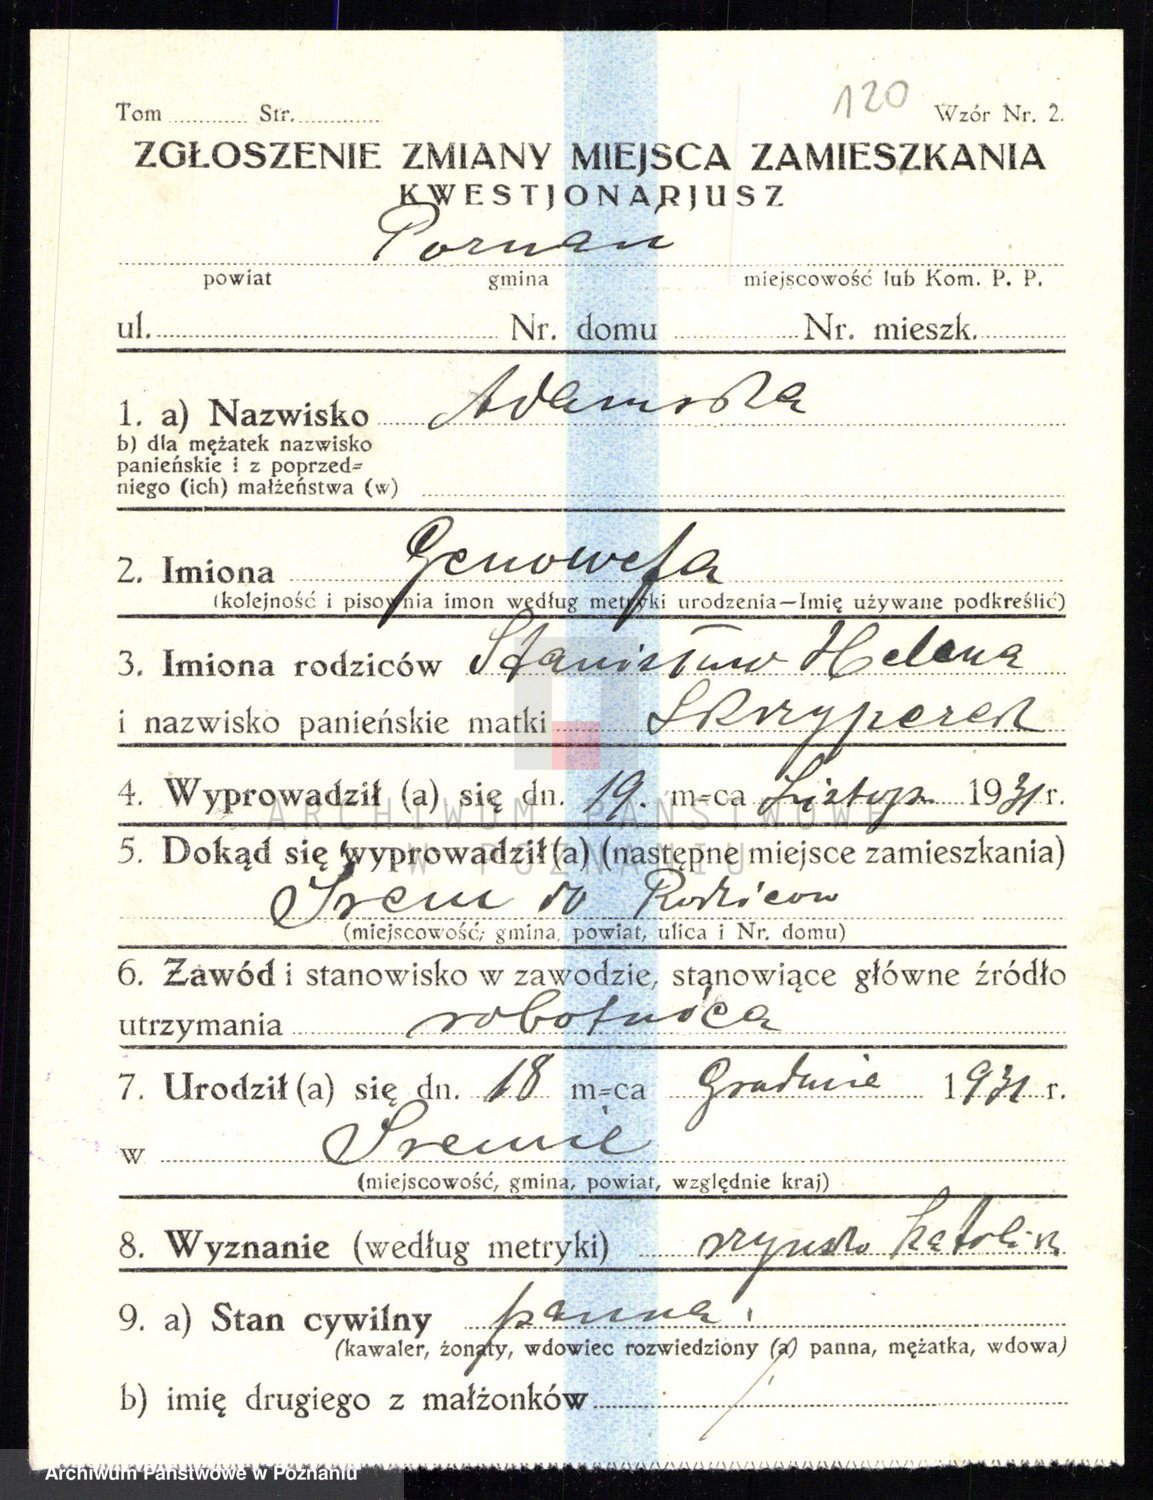 120
Tom ........... Str. ........... Wzór Nr. 2.
ZGŁOSZENIE ZMIANY MIEJSCA ZAMIESZKANIA
KWESTJONARJUSZ
Poznań
powiat gmina miejscowość lub Kom. P. P.
ul. ........... Nr. domu ........... Nr. mieszk. ...........
1. a) Nazwisko Adamska
b) dla mężatek nazwisko
panieńskie i z poprzed=
niego (ich) małżeństwa (w)
2. Imiona Genowefa
(kolejność i pisownia imon według metryki urodzenia—Imię używane podkreślić)
3. Imiona rodziców Stanisław Helena
i nazwisko panieńskie matki Skrzypczak
ARCHIWUM PAŃSTWOWE
W POZNANIU
4. Wyprowadził (a) się dn. 19. m=ca Listop. 1931 r.
5. Dokąd się wyprowadził (a) (następne miejsce zamieszkania)
Srem do Rodziców
(miejscowość; gmina, powiat, ulica i Nr. domu)
6. Zawód i stanowisko w zawodzie, stanowiące główne źródło
utrzymania robotnica
7. Urodził (a) się dn. 18 m=ca Grudnie 1931 r.
w Sremie
(miejscowość, gmina, powiat, względnie kraj)
8. Wyznanie (według metryki) rzymsko katolik
9. a) Stan cywilny panna
(kawaler, żonaty, wdowiec rozwiedziony (a) panna, mężatka, wdowa)
b) imię drugiego z małżonków
Archiwum Państwowe w Poznaniu